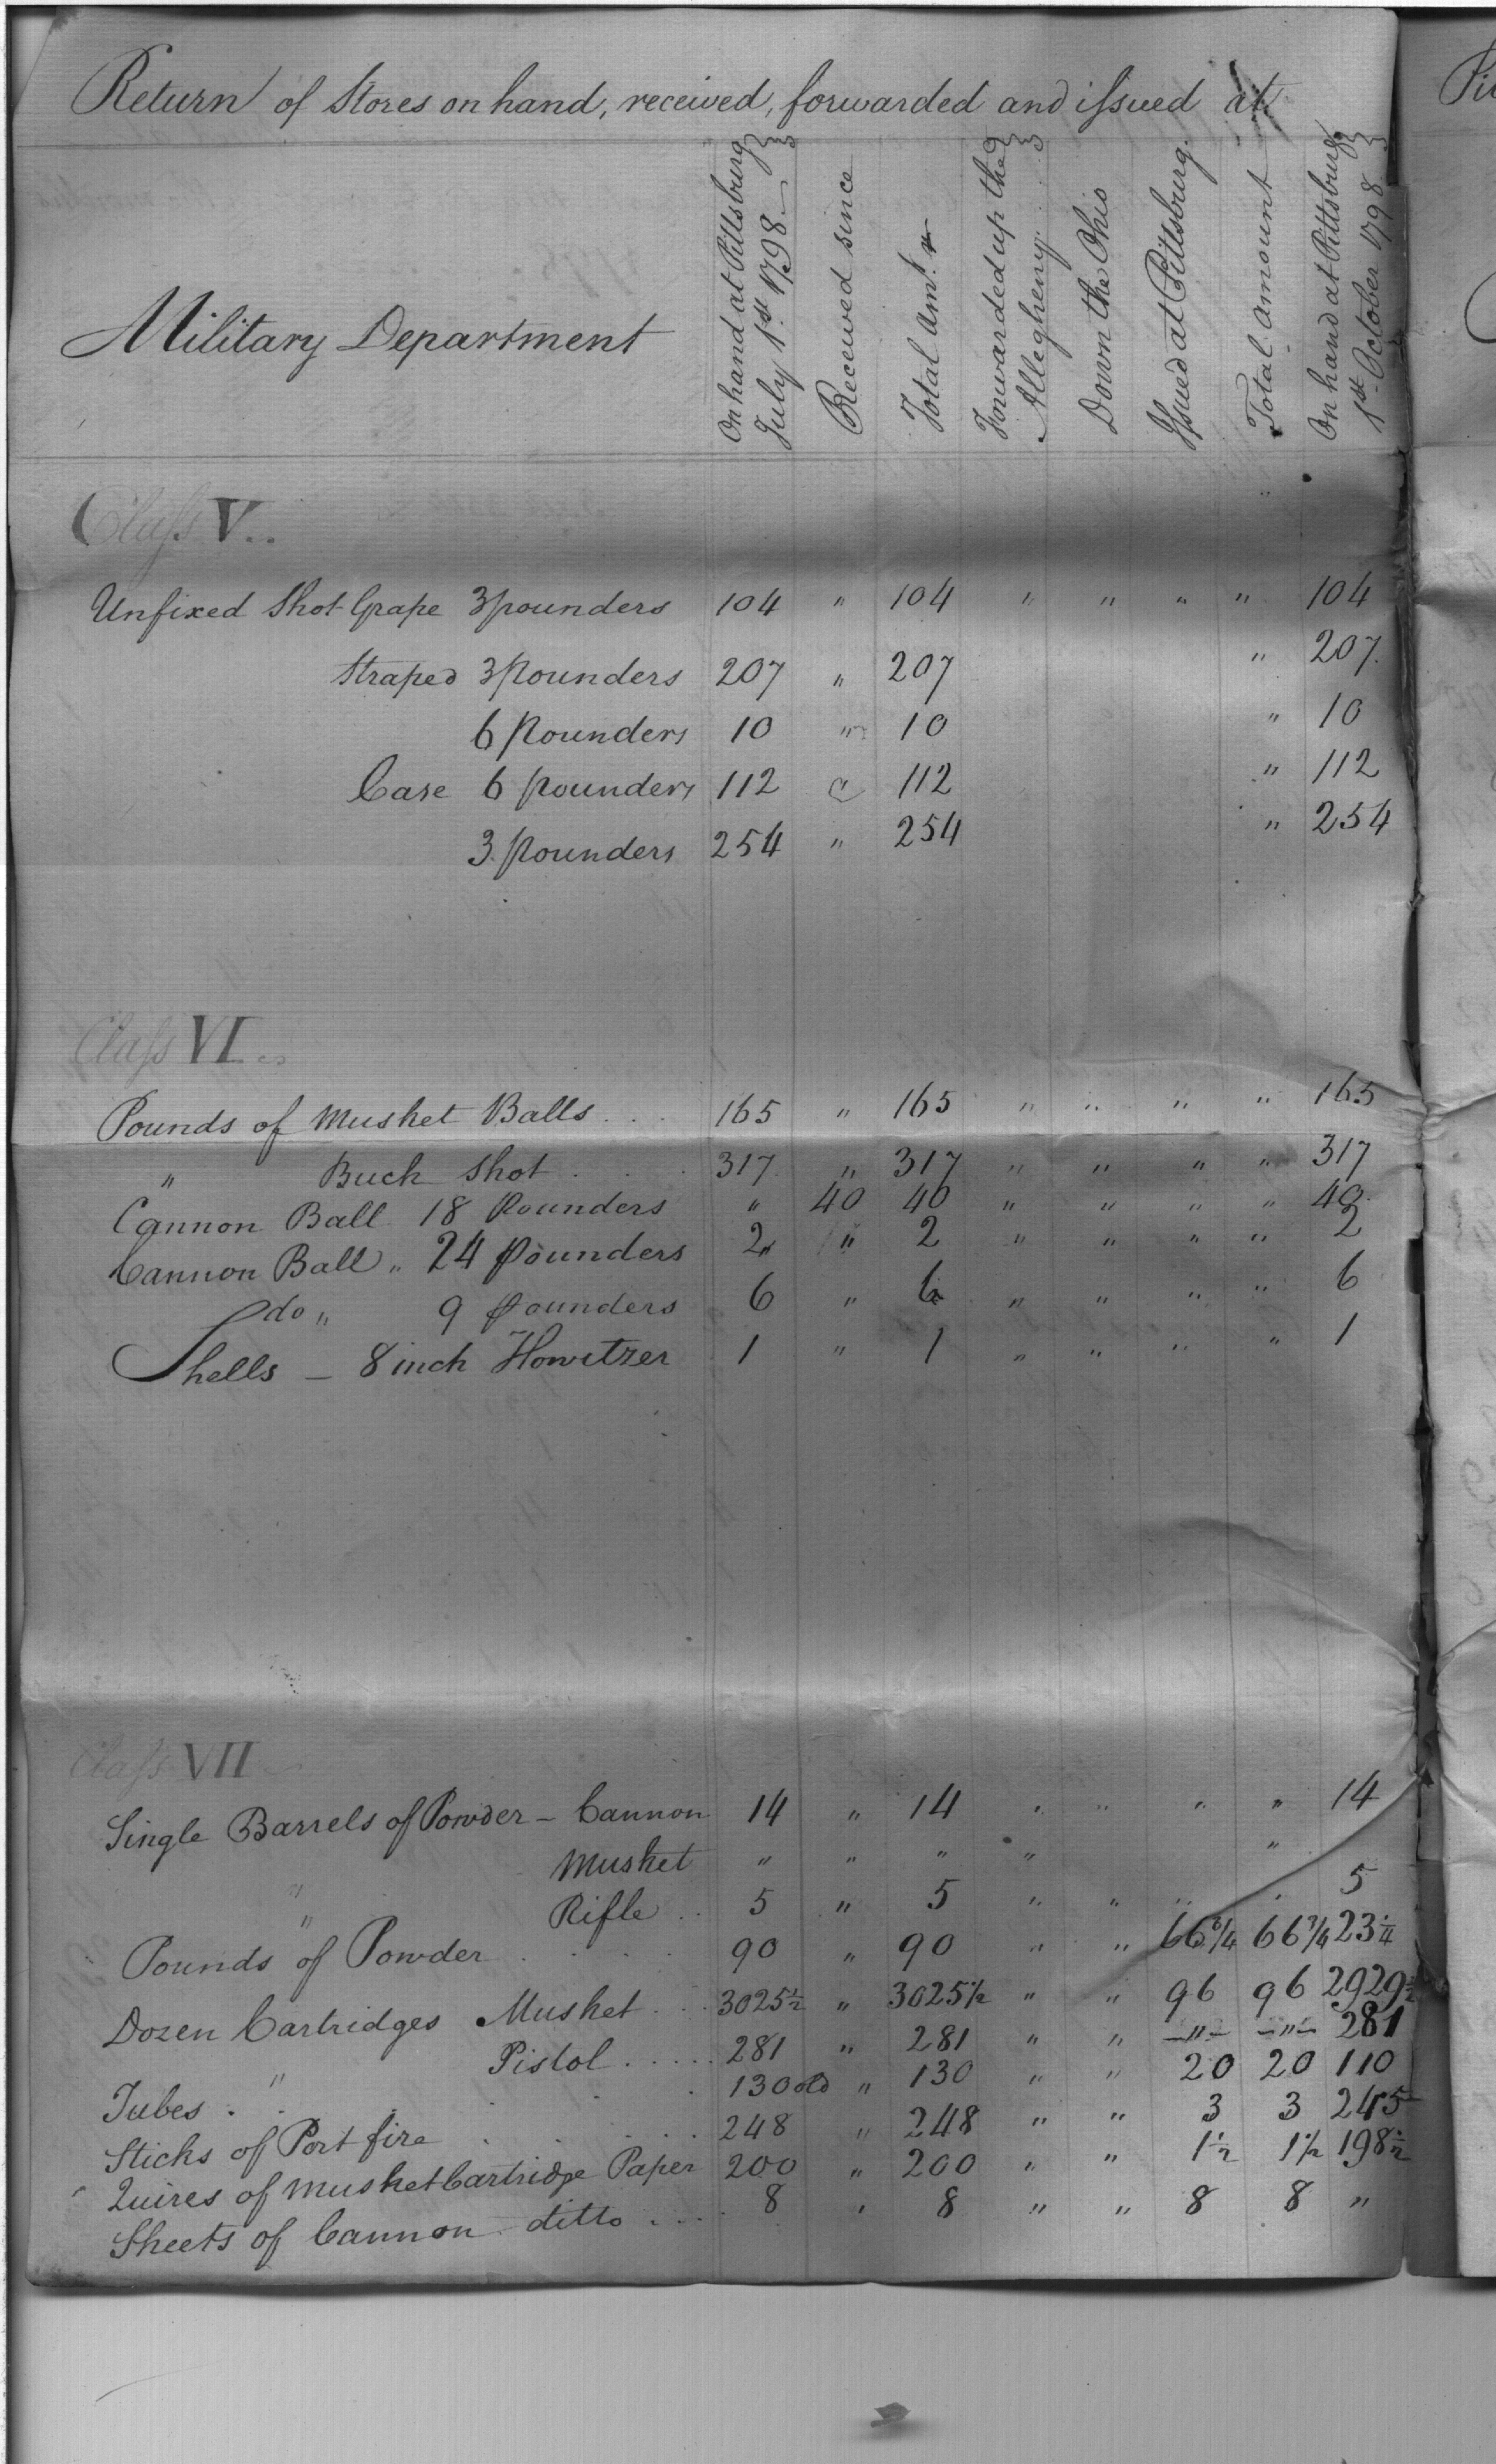 Return of Stores on hand, received, forwarded and issued at
Military Department
On hand at Pittsburg
July 1st. 1798
Received since
Total Amt.
Forwarded up the
Allegheny
Down the Ohio
Issued at Pittsburg.
Total amount
On hand at Pittsburg
1st October 1798
Class V..
Unfixed Shot Grape 3 pounders 104 " 104 " " " " 104
Straped 3 Pounders 207 " 207 " 207
6 Pounders 10 " 10 " 10
Case 6 pounders 112 " 112 " 112
3 Pounders 254 " 254 " 254
Class VI..
Pounds of Musket Balls... 165 " 165 " " " " 165
" Buck Shot... 317 " 317 " " " " 317
Cannon Ball 18 Pounders " 40 40 " " " " 40
Cannon Ball " 24 Pounders 2 " 2 " " " " 2
do " 9 Pounders 6 " 6 " " " " 6
Shells - 8 inch Howitzer 1 " 1 " " " " 1
Class VII
Single Barrels of Powder - Cannon 14 " 14 " " " " 14
" Musket " " " " "
" Rifle.. 5 " 5 " " " " 5
Pounds of Powder.... 90 " 90 " " 66 66 23 1/4
Dozen Cartridges Musket... 3025 1/2 " 3025 1/2 " " 96 96 2929 1/2
" Pistol..... 281 " 281 " " -"- -"- 281
Tubes.... 130 old " 130 " " 20 20 110
Sticks of Port fire..... 248 " 248 " " 3 3 245
Quires of Musket Cartridge Paper 200 " 200 " " 1 1/2 1 1/2 198 1/2
Sheets of Cannon ditto.... 8 " 8 " " 8 8 "